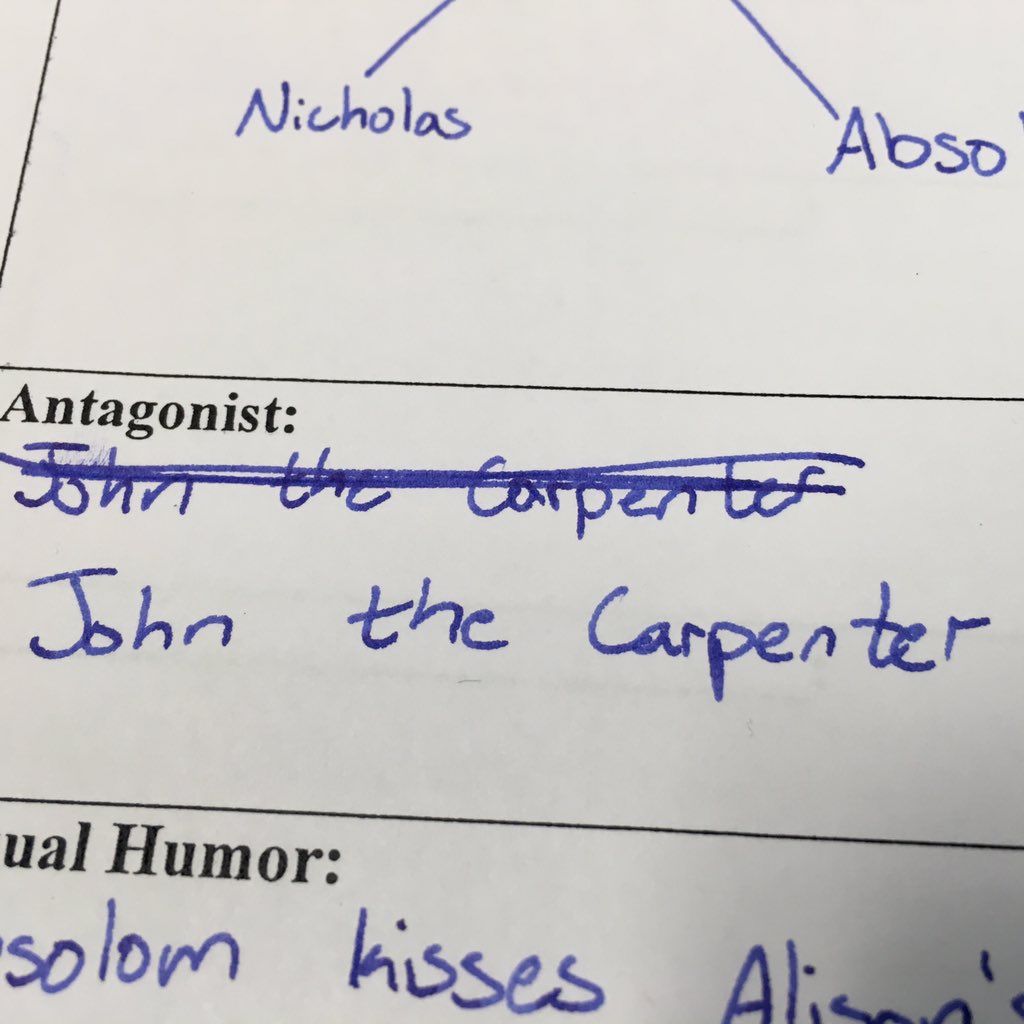 Nicholas Absol
Antagonist:
John the Carpenter
John the Carpenter
ual Humor:
solom kisses Alison's